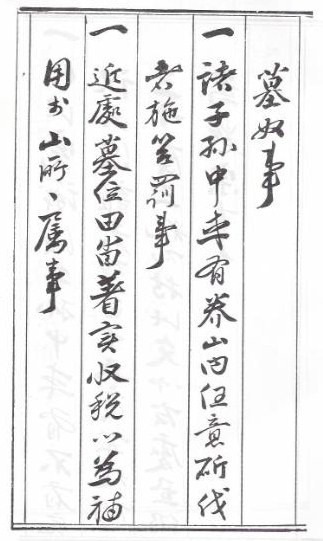 墓奴事
一 諸子孫中幸有養山內任意斫伐
者施笞罰事
一 近處墓位田畓着實收稅以為補
用於山所〻屬事